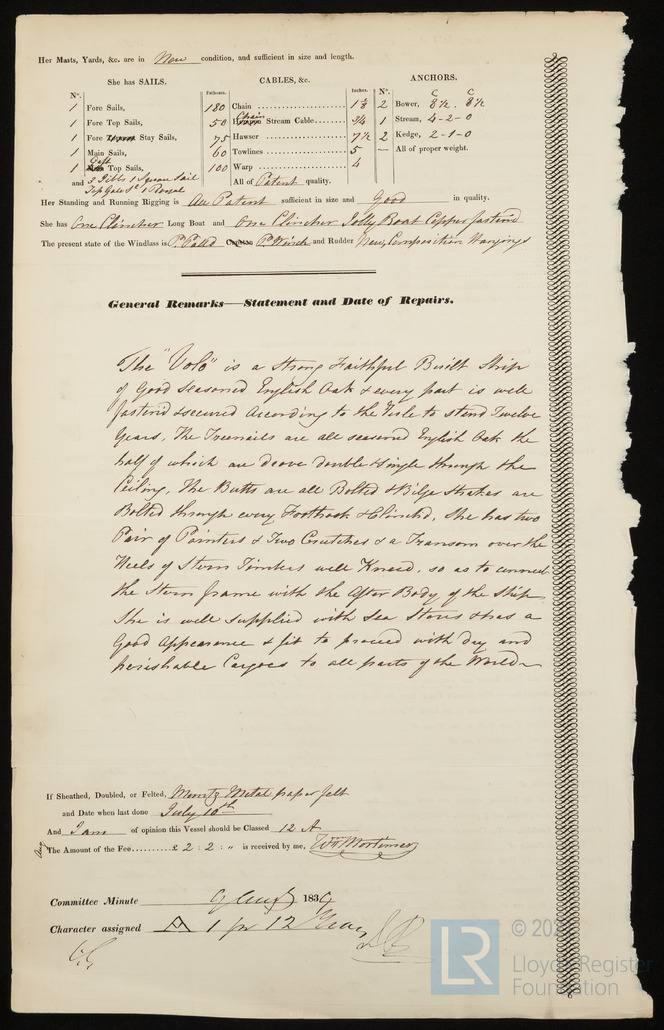 Her Masts, Yards, &c. are in New condition, and sufficient in size and length.
She has SAILS.
CABLES, &c.
ANCHORS.
No.
Fathoms.
Inches.
No.
C C
1 Fore Sails,
180 Chain
2 Bower, 8½. 8½
1 Fore Top Sails,
50 Chain Stream Cable
3/4
1 Stream, 4-2-0
1 Fore Stay Sails,
75 Hawser
7½
2 Kedge, 2-1-0
1 Main Sails,
60 Towlines
5
— All of proper weight.
1 Gaft Top Sails,
100 Warp
4
and 3 Jibbs 1 Square Sail
Top Galt Sl 1 Royal
All of Patent quality.
Her Standing and Running Rigging is All Patent sufficient in size and Good in quality.
She has One Clincher Long Boat and One Clincher Jolly Boat Copper fastend
The present state of the Windlass is P. Palld P. Winch and Rudder New, Composition Hangings
General Remarks—Statement and Date of Repairs.
The "Volo" is a Strong Faithful Built Ship
of Good Seasoned English Oak & every part is well
fastend & secured According to the Rule to stand Twelve
Years, The Treenails are all seasoned English Oak the
half of which are drove double & single through the
Ceiling, The Butts are all Bolted & Bilge Strakes are
Bolted through every Foothook & Clinchd, She has two
Pair of Pointers & Two Crutches & a Transom over the
Heels of Stern Timbers well Kneed, so as to connect
the Stern frame with the After Body of the Ship
She is well supplied with Sea Stores & has a
Good Appearance & fit to proceed with dry and
perishable Cargoes to all parts of the World
If Sheathed, Doubled, or Felted, Muntz Metal paper felt
and Date when last done July 10th
And I am of opinion this Vessel should be Classed 12 A
Aug The Amount of the Fee £ 2 : 2 : „ is received by me, Wm Mortimer
Committee Minute 9 Augt 1839
Character assigned A 1 for 12 Years
LR
© 202
Lloyd's Register
Foundation